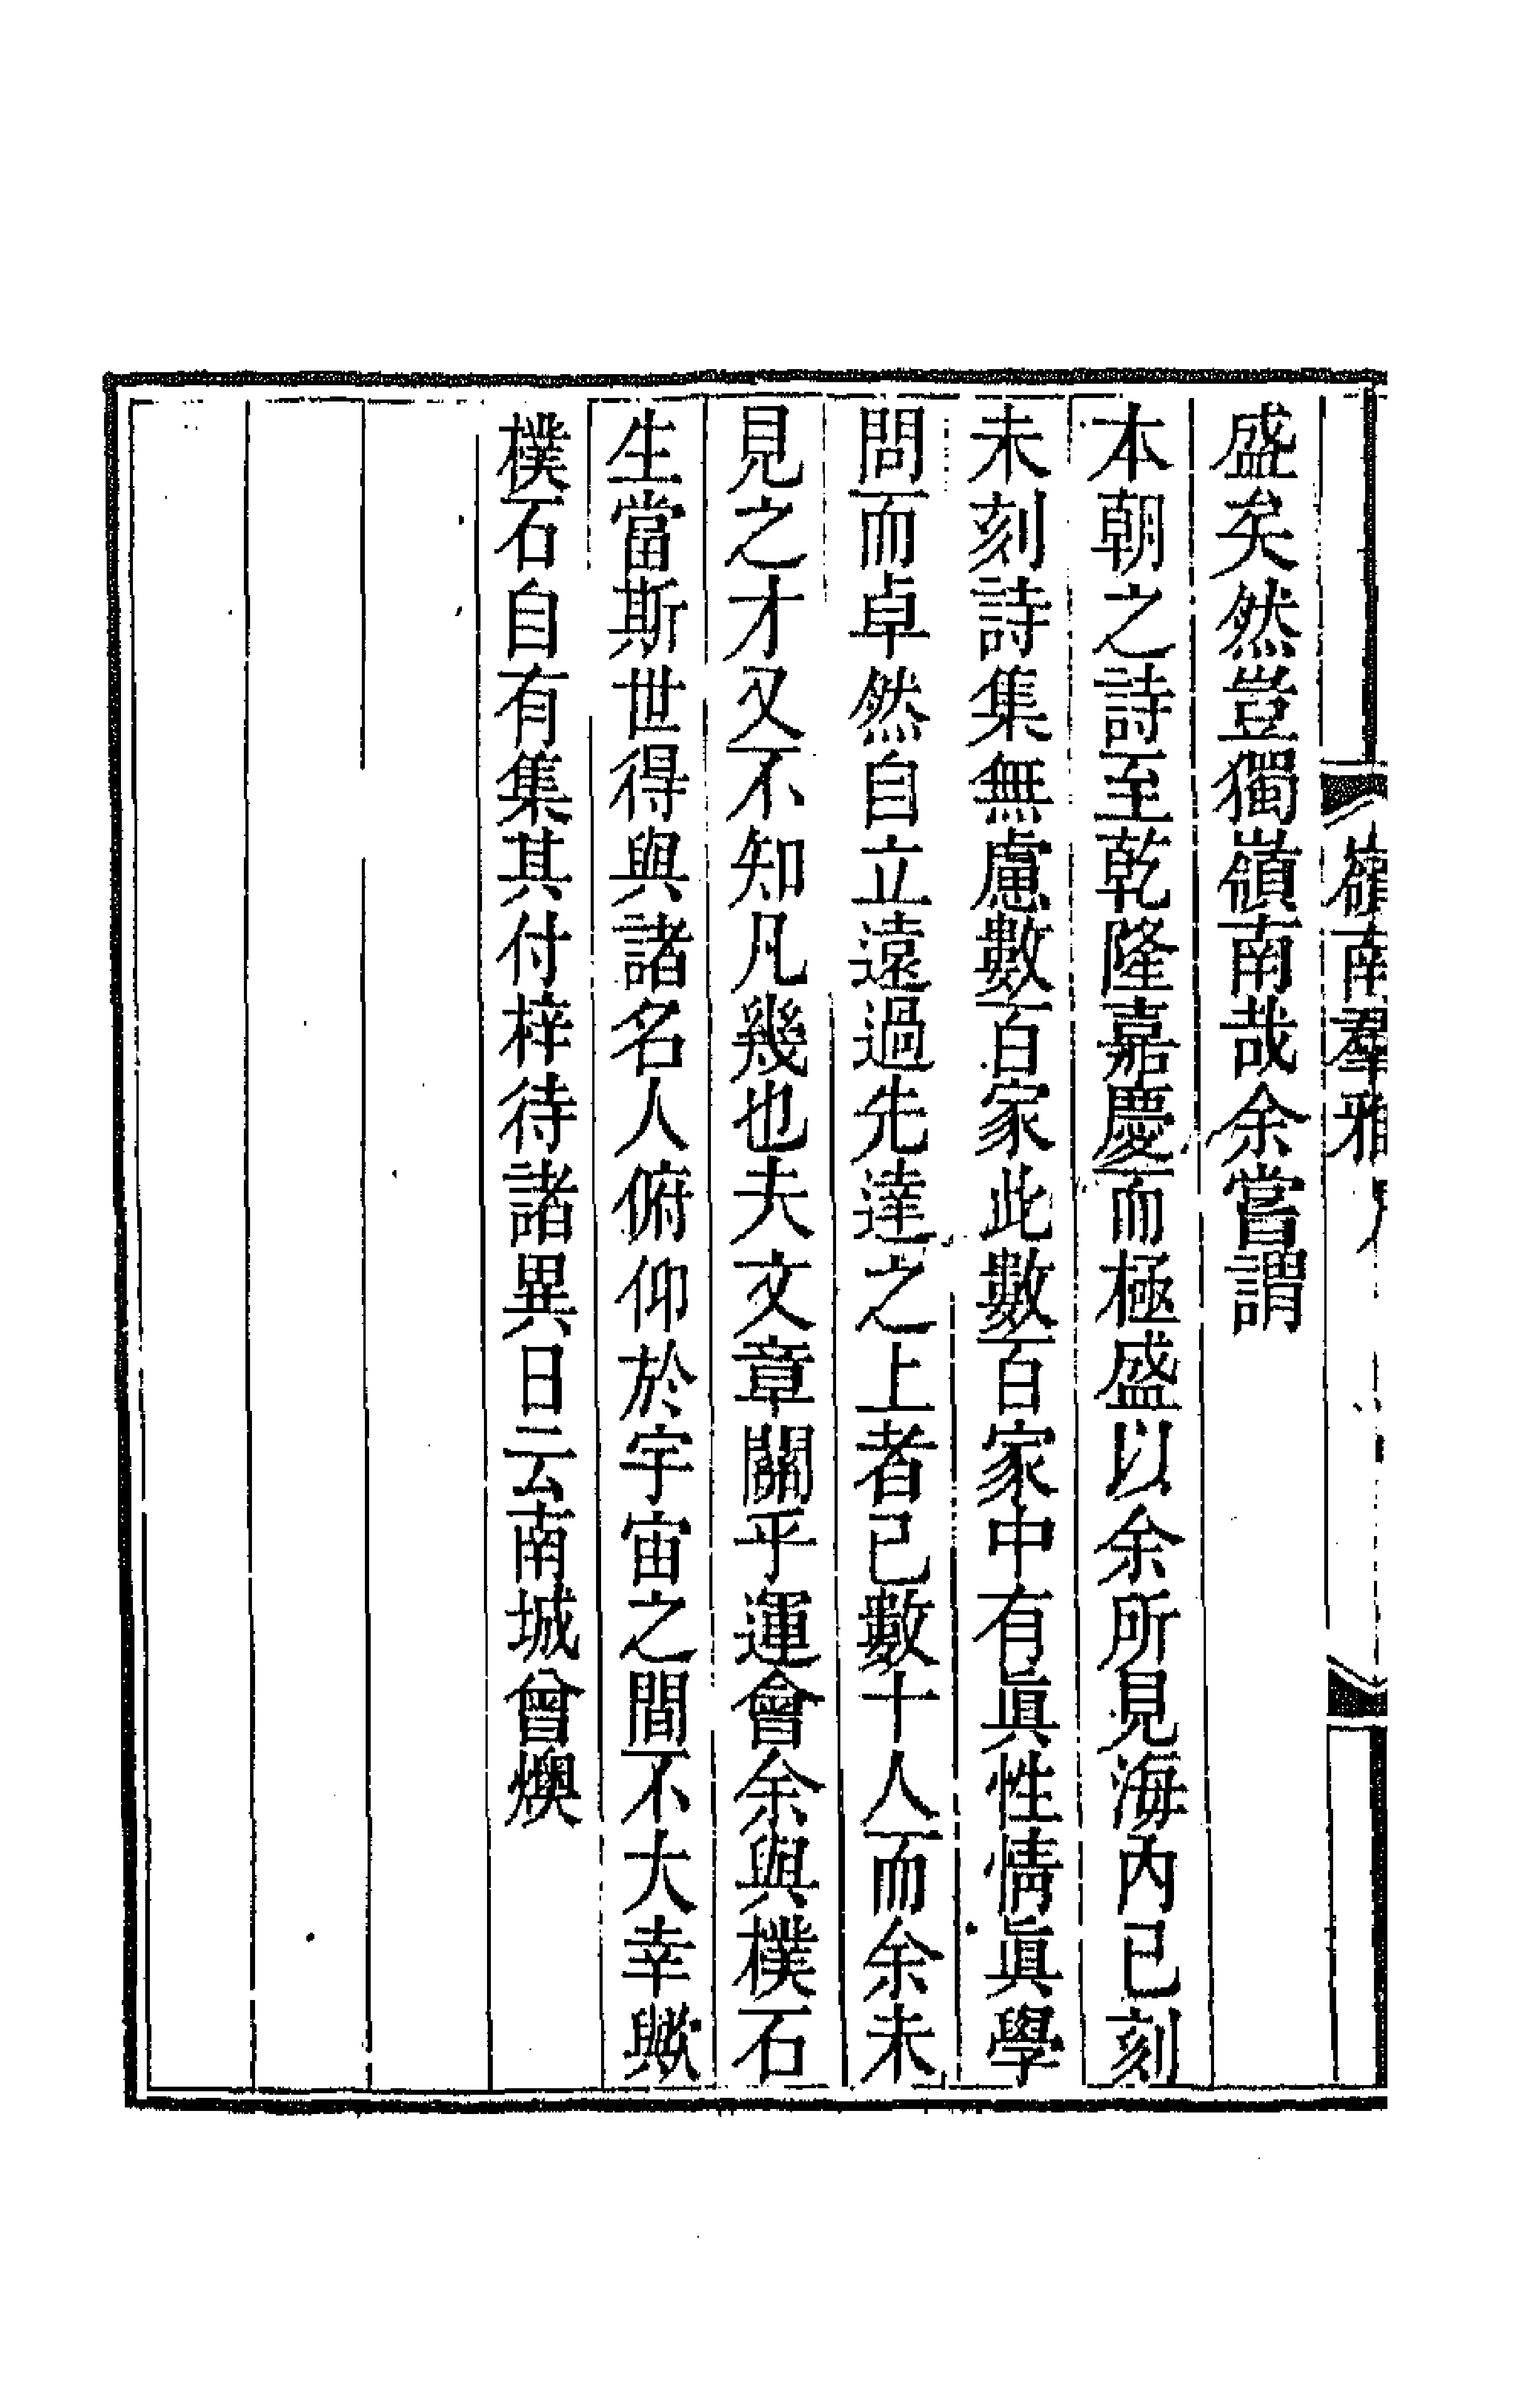 嶺南羣雅
盛矣然豈獨嶺南哉余嘗謂
本朝之詩至乾隆嘉慶而極盛以余所見海內已刻
未刻詩集無慮數百家此數百家中有眞性情眞學
問而卓然自立遠過先達之上者已數十人而余未
見之才又不知凡幾也夫文章關乎運會余與樸石
生當斯世得與諸名人俯仰於宇宙之間不大幸歟
樸石自有集其付梓待諸異日云南城曾燠